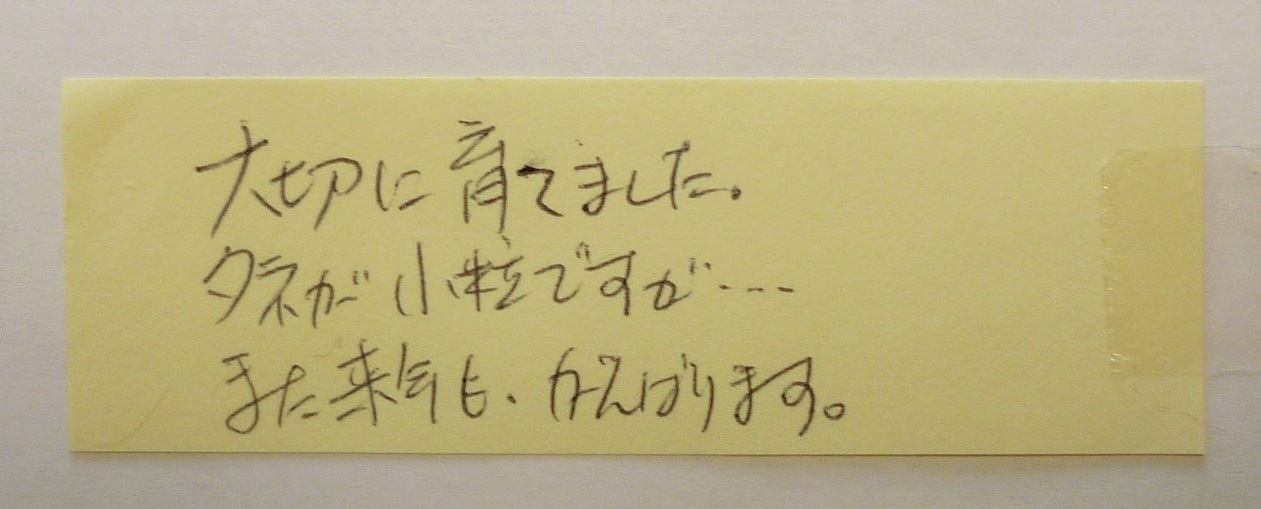 大切に育てました。
タネが小粒ですが…
また来年も、がんばります。